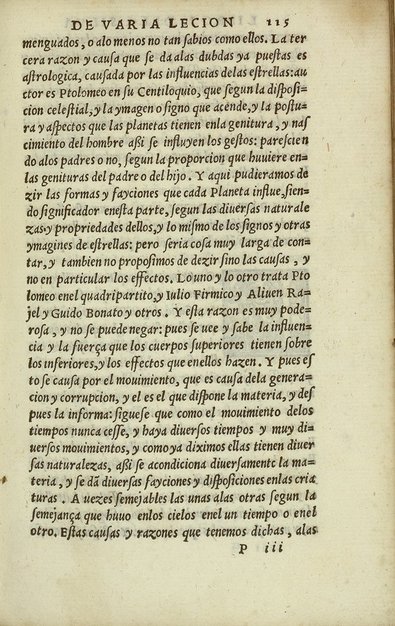 DE VARIA LECION 115
menguados, o alo menos no tan sabios como ellos. La ter
cera razon y causa que se da alas dubdas ya puestas es
astrologica, causada por las influencias delas estrellas: au
ctor es Ptolomeo en su Centiloquio, que segun la disposi-
cion celestial, y la ymagen o signo que acende, y la postu-
ra y aspectos que las planetas tienen enla genitura, y nas
cimiento del hombre assi se influyen los gestos: parescien
do alos padres o no, segun la proporcion que huuiere en-
las genituras del padre o del hijo. Y aqui pudieramos de
zir las formas y fayciones que cada Planeta influe, sien-
do significador enesta parte, segun las diuersas naturale
zas y propriedades dellos, y lo mismo de los signos y otras
ymagines de estrellas: pero seria cosa muy larga de con-
tar, y tambien no proposimos de dezir sino las causas, y
no en particular los effectos. Lo uno y lo otro trata Pto
lomeo enel quadripartito, y Iulio Firmico y Aliuen Ra-
jel y Guido Bonato y otros. Y esta razon es muy pode-
rosa, y no se puede negar: pues se uee y sabe la influen-
cia y la fuerça que los cuerpos superiores tienen sobre
los inferiores, y los effectos que enellos hazen. Y pues es
to se causa por el mouimiento, que es causa dela genera-
cion y corrupcion, y el es el que dispone la materia, y des
pues la informa: siguese que como el mouimiento delos
tiempos nunca cesse, y haya diuersos tiempos y muy di-
uersos mouimientos, y como ya diximos ellas tienen diuer
sas naturalezas, assi se acondiciona diuersamente la ma-
teria, y se dã diuersas fayciones y disposiciones enlas cria
turas. A uezes semejables las unas alas otras segun la
semejança que huuo enlos cielos enel un tiempo o enel
otro. Estas causas y razones que tenemos dichas, alas
P iii